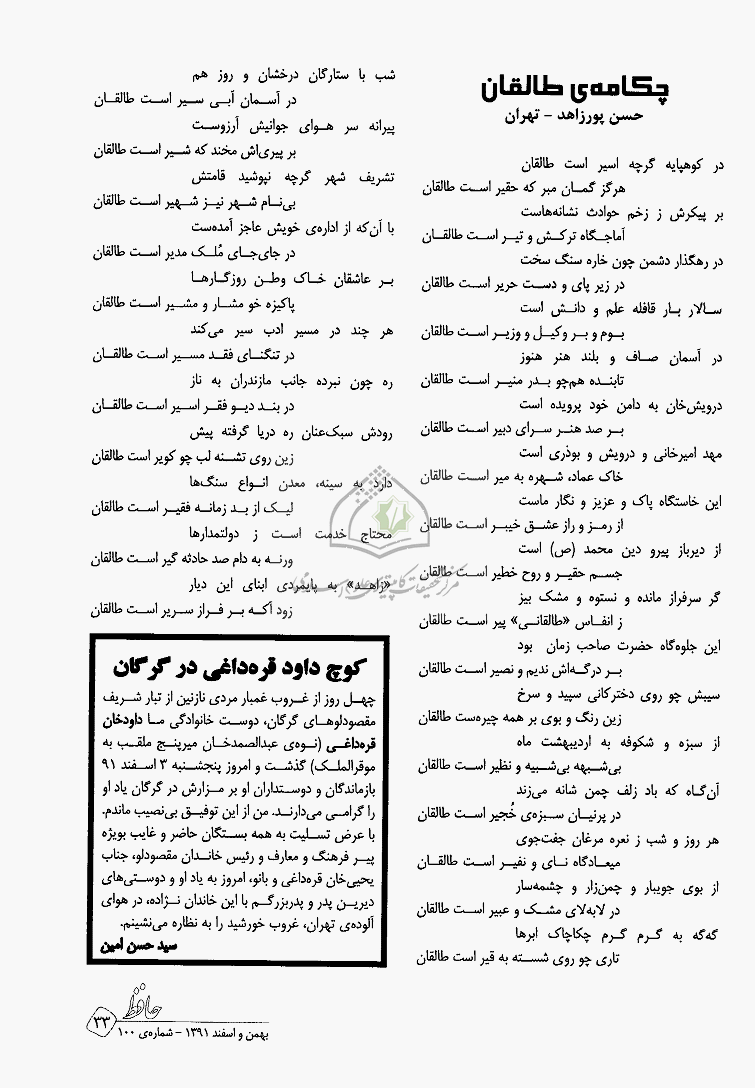 چکامه‌ی طالقان
حسن پورزاهد – تهران
در کوهپایه گرچه اسیر است طالقان
هرگز گمان مبر که حقیر است طالقان
بر پیکرش ز زخم حوادث نشانه‌هاست
آماجگاه ترکش و تیر است طالقان
در رهگذار دشمن چون خاره سنگ سخت
در زیر پای و دست حریر است طالقان
سالار بار قافله علم و دانش است
بوم و بر وکیل و وزیر است طالقان
در آسمان صاف و بلند هنر هنوز
تابنده هم‌چو بدر منیر است طالقان
درویش‌خان به دامن خود پرویده است
بر صد هنر سرای دبیر است طالقان
مهد امیرخانی و درویش و بوذری است
خاک عماد، شهره به میر است طالقان
این خاستگاه پاک و عزیز و نگار ماست
از رمز و راز عشق خیبر است طالقان
از دیرباز پیرو دین محمد (ص) است
جسم حقیر و روح خطیر است طالقان
گر سرفراز مانده و نستوه و مشک بیز
ز انفاس «طالقانی» پیر است طالقان
این جلوه‌گاه حضرت صاحب زمان بود
بر درگه‌اش ندیم و نصیر است طالقان
سیبش چو روی دخترکانی سپید و سرخ
زین رنگ و بوی بر همه چیره‌ست طالقان
از سبزه و شکوفه به اردیبهشت ماه
بی‌شبهه بی‌شبیه و نظیر است طالقان
آن‌گاه که باد زلف چمن شانه می‌زند
در پرنیان سبزه‌ی خُجیر است طالقان
هر روز و شب ز نعره مرغان جفت‌جوی
میعادگاه نای و نفیر است طالقان
از بوی جویبار و چمن‌زار و چشمه‌سار
در لابه‌لای مشک و عبیر است طالقان
گه‌گه به گرم گرم چکاچاک ابرها
تاری چو روی شسته به قیر است طالقان
شب با ستارگان درخشان و روز هم
در آسمان آبی سیر است طالقان
پیرانه سر هوای جوانیش آرزوست
بر پیری‌اش مخند که شیر است طالقان
تشریف شهر گرچه نپوشید قامتش
بی‌نام شهر نیز شهیر است طالقان
با آن‌که از اداره‌ی خویش عاجز آمده‌ست
در جای‌جای مُلک مدیر است طالقان
بر عاشقان خاک وطن روزگارها
پاکیزه خو مشار و مشیر است طالقان
هر چند در مسیر ادب سیر می‌کند
در تنگنای فقد مسیر است طالقان
ره چون نبرده جانب مازندران به ناز
در بند دیو فقر اسیر است طالقان
رودش سبک‌عنان ره دریا گرفته پیش
زین روی تشنه لب چو کویر است طالقان
دارد به سینه، معدن انواع سنگ‌ها
لیک از بد زمانه فقیر است طالقان
محتاج خدمت است ز دولتمدارها
ورنه به دام صد حادثه گیر است طالقان
«زاهد» به پایمردی ابنای این دیار
زود آکه بر فراز سریر است طالقان
کوچ داود قره‌داغی در گرگان
چهل روز از غروب غمبار مردی نازنین از تبار شریف
مقصودلوهای گرگان، دوست خانوادگی ما داودخان
قره‌داغی (نوه‌ی عبدالصمدخان میرپنج ملقب به
موقرالملک) گذشت و امروز پنجشنبه ۳ اسفند ۹۱
بازماندگان و دوستداران او بر مزارش در گرگان یاد او
را گرامی می‌دارند. من از این توفیق بی‌نصیب ماندم.
با عرض تسلیت به همه بستگان حاضر و غایب بویژه
پیر فرهنگ و معارف و رئیس خاندان مقصودلو، جناب
یحیی‌خان قره‌داغی و بانو، امروز به یاد او و دوستی‌های
دیرین پدر و پدربزرگم با این خاندان نژاده، در هوای
آلوده‌ی تهران، غروب خورشید را به نظاره می‌نشینم.
سید حسن امین
حافظ
۳۳
بهمن و اسفند ۱۳۹۱ – شماره‌ی ۱۰۰